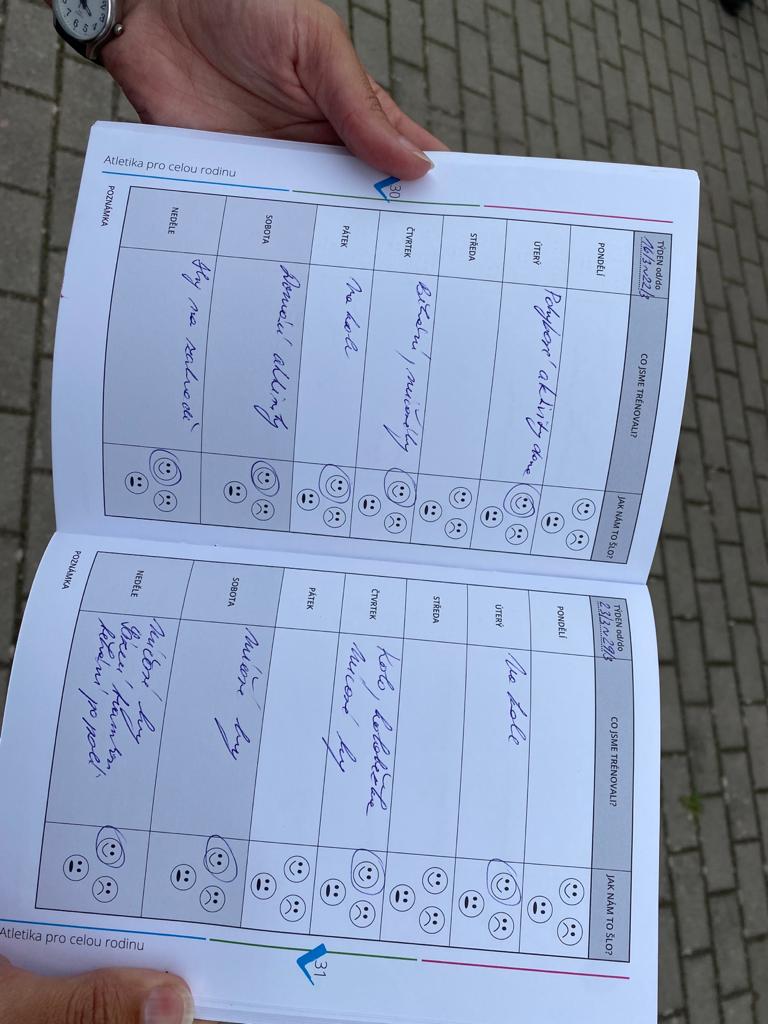 Atletika pro celou rodinu
TÝDEN od/do
16/3 - 22/3
CO JSME TRÉNOVALI?
JAK NÁM TO ŠLO?
PONDĚLÍ
ÚTERÝ
Pohybové aktivity doma
STŘEDA
ČTVRTEK
Běhání, míčové hry
PÁTEK
Na kole
SOBOTA
Domácí aktivity
NEDĚLE
Hry na zahradě
POZNÁMKA
30
TÝDEN od/do
23/3 - 29/3
CO JSME TRÉNOVALI?
JAK NÁM TO ŠLO?
PONDĚLÍ
ÚTERÝ
Na kole
STŘEDA
ČTVRTEK
Kolo, koloběžka
Míčové hry
PÁTEK
SOBOTA
Míčové hry
NEDĚLE
Míčové hry
po poli
POZNÁMKA
Atletika pro celou rodinu
31